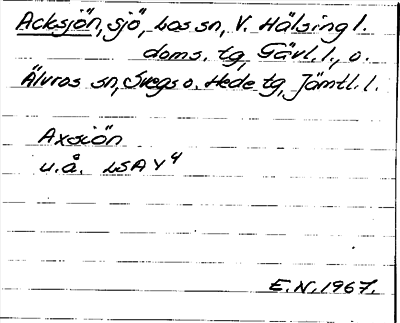 Acksjön, sjö, Los sn, V. Hälsingl.
doms. tg, Gävl. l., o.
Älvros sn, Svegs o. Hede tg, Jämtl. l.
Axsiön
u.å. LSA Y4
E.N. 1967.